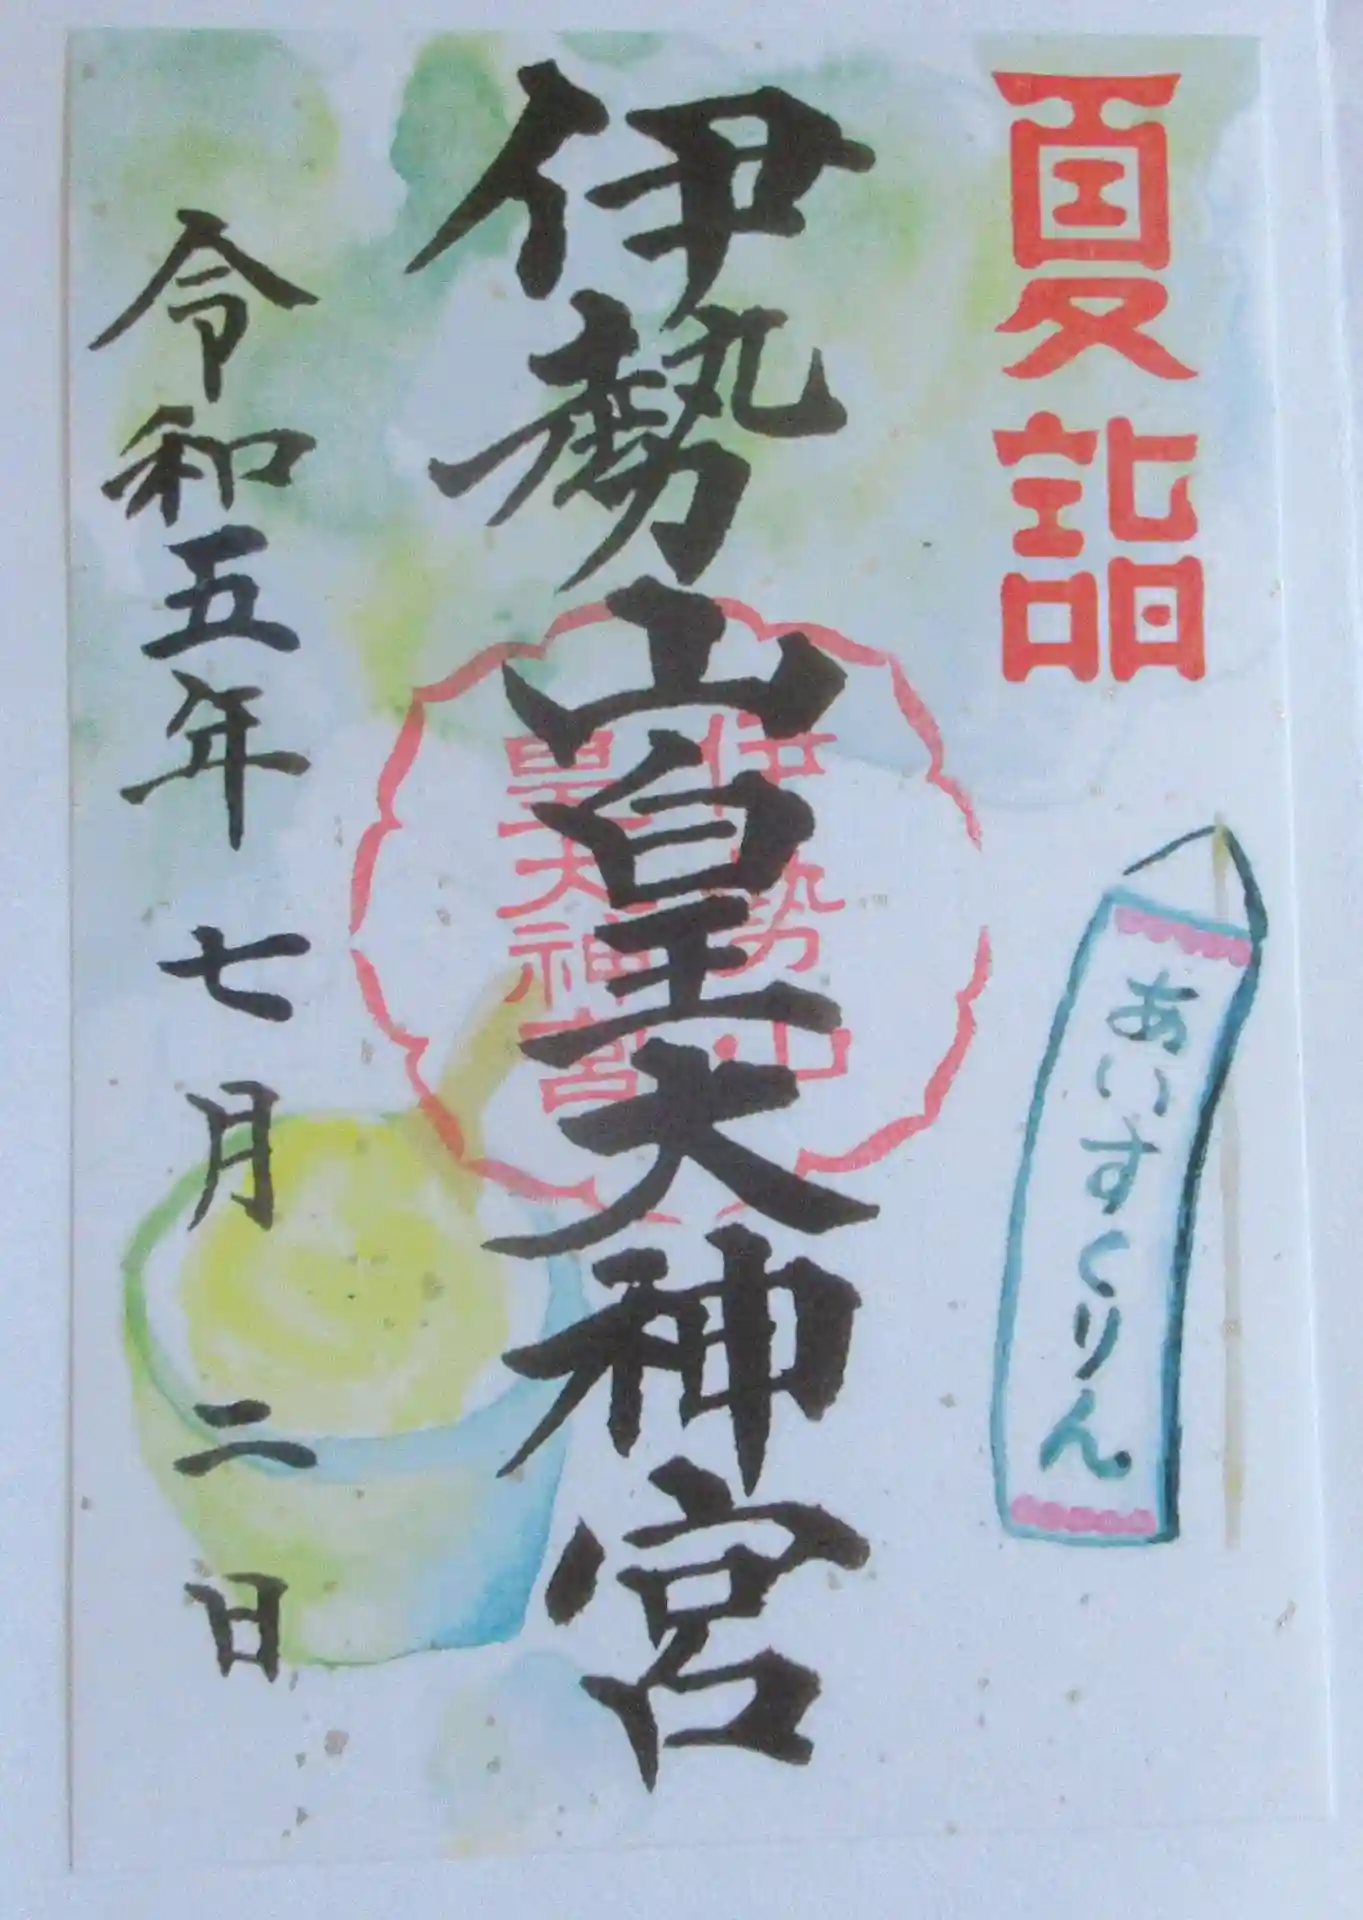 夏詣
あいすくりん
伊勢山皇大神宮
伊勢山
皇大神宮
令和五年七月二日